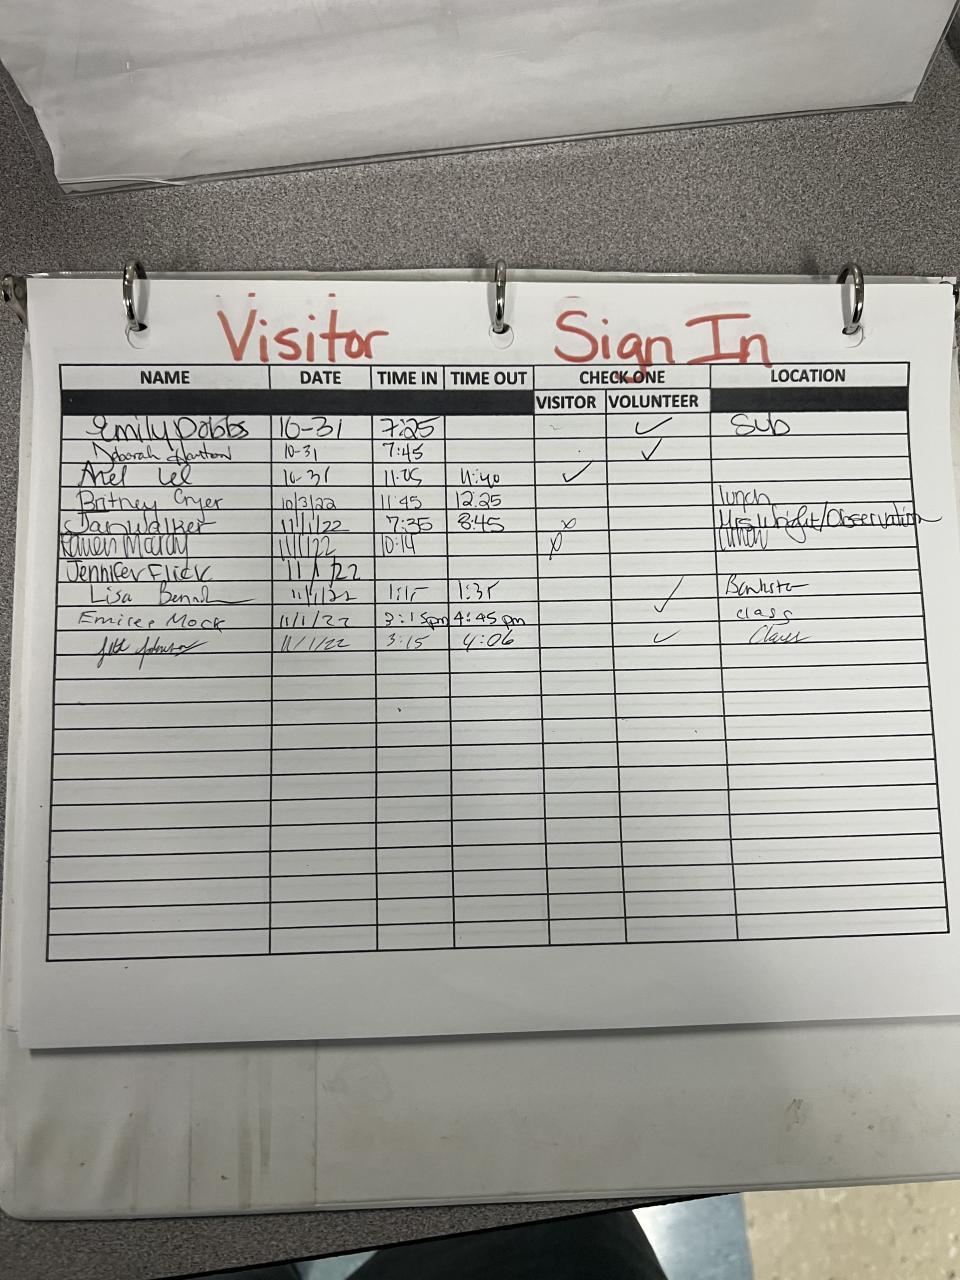 Visitor Sign In
NAME DATE TIME IN TIME OUT CHECK ONE LOCATION
VISITOR VOLUNTEER
Emily Dobbs 10-31 7:25 ✓ Sub
Deborah 10-31 7:45 ✓
10-31 11:25 11:40 ✓
Britney Cryer 10/3/22 11:45 12:25 lunch
Dan Walker 11/1/22 7:35 8:45 x Mrs Wright/Observation
11/1/22 10:14 x lunch
Jennifer Flick 11/1/22
Lisa 11/1/22 1:15 1:35 ✓
Emilee Mock 11/1/22 3:15pm 4:45 pm class
11/1/22 3:15 4:06 ✓ Class